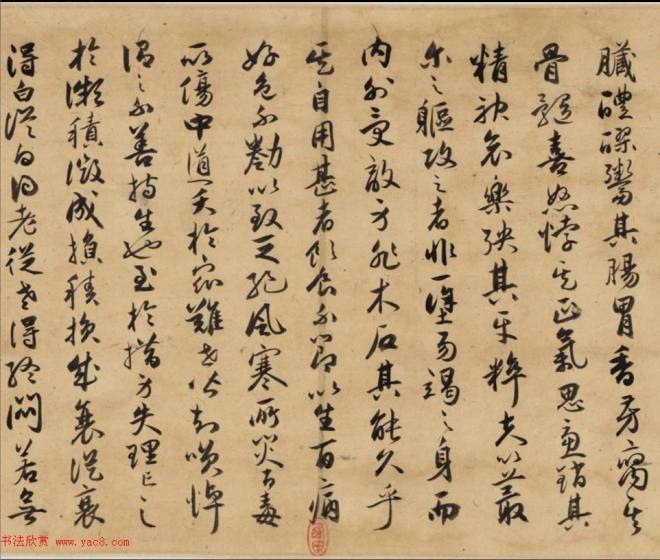 臓醴醪鬻其腸胃香芳腐其
骨髓喜怒悖其正氣思慮銷其
精神哀樂殃其平粹夫以蕞
尔之軀攻之者非一塗易竭之身而
内外受敵身非木石其能久乎
其自用甚者飲食不節以生百病
好色不勌以致乏絶風寒所災百毒
所傷中道夭於衆難世皆知笑悼
謂之不善持生也至於措身失理亡之
於微積微成損積損成衰從衰
得白從白得老從老得終悶若無
书法欣赏 www.yac8.com